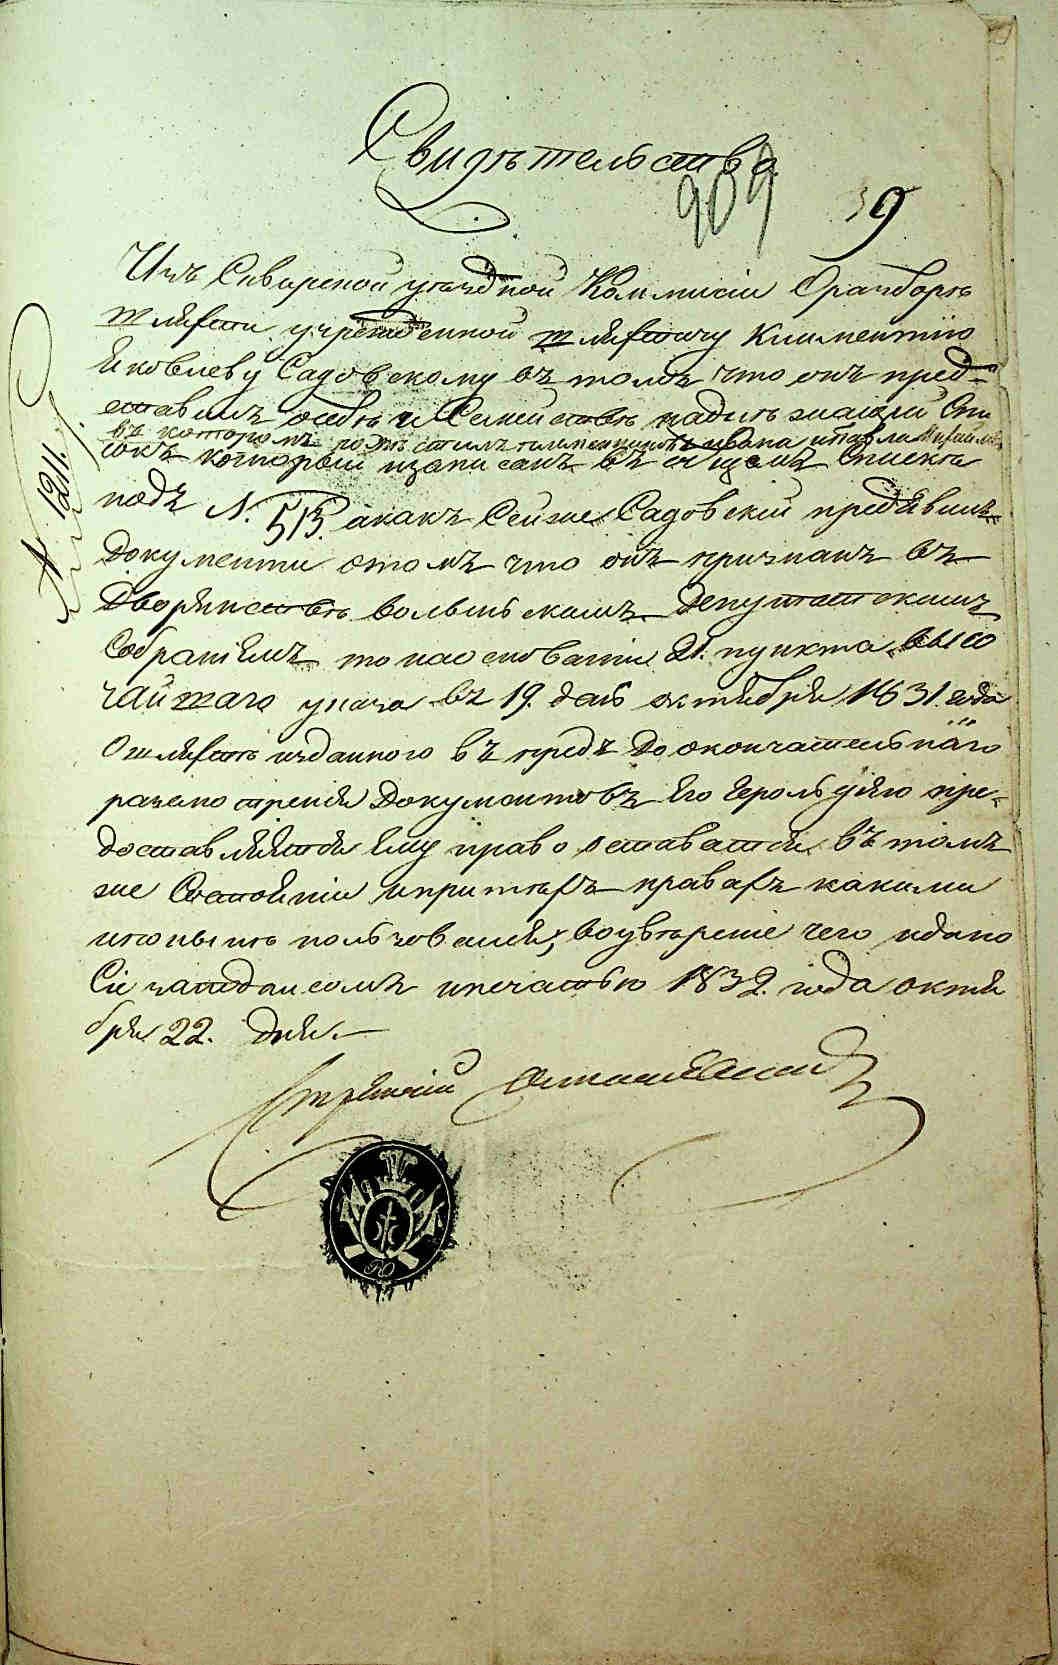 Свидѣтельство
909
39
№ 1211.
Изъ Сквирской уѣздной Коммисіи О разборѣ
шляхти учрежденной шляхтичу Климентію
Яковлеву Садовскому въ томъ что онъ пред-
ставилъ о себѣ и Семействѣ надлежащій Спи
въ которомъ
сокъ который изаписанъ въ общемъ Спискѣ
подъ N. 513. а какъ Сей же Садовскій предъявилъ
Документи отомъ что онъ признанъ въ
Дворянствѣ волынскимъ Депутатскимъ
Собраніемъ то на основаніи 21. пункта высо
чайшаго указа въ 19. день октября 1831. года
О шляхтѣ изданного въ предъ до окончательнаго
разсмотренія Документовъ Его Герольдіею пре-
доставляется Ему право оставатся въ томъ
же Состояніи ипритѣхъ правахъ какими
и по нынѣ пользовался, во увѣреніе чего идано
Сіе заподписомъ ипечатью 1832. года октя
бря 22. Дня.